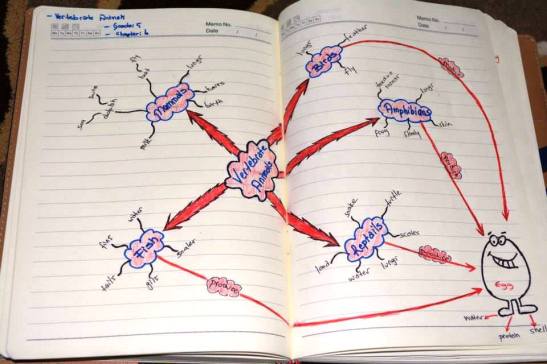 - Vertebrate Animals
- Grade 5
- Chapter 6
Memo No.
Date / /
Memo No.
Date / /
Mammals
lungs
hairs
birth
milk
Birds
lungs
feather
fly
Amphibians
lungs
skin
frog
Vertebrate
Animals
Fish
water
fins
scales
tails
gills
produce
Reptails
snake
turtle
scales
lungs
water
land
Egg
water
protein
shell